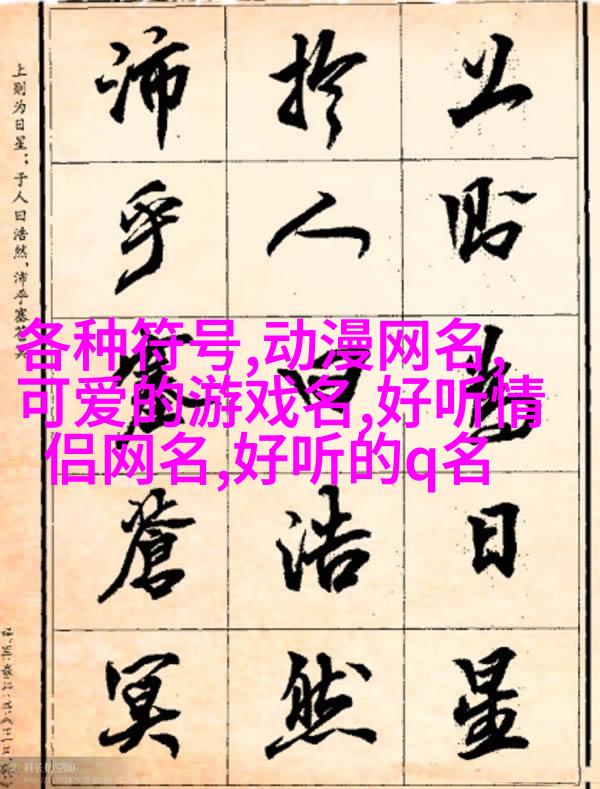 上则为日星
於人曰浩然
沛乎塞苍冥
上则为日星；于人曰浩然，沛乎塞苍冥
各种符号,动漫网名,
可爱的游戏名,好听情
侣网名,好听的q名
科长的空间